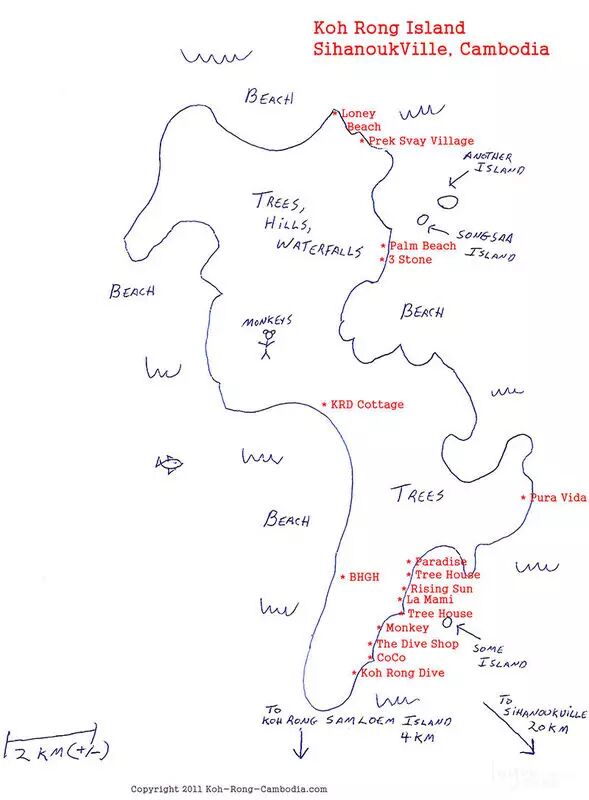 Koh Rong Island
SihanoukVille, Cambodia
BEACH
* Loney
Beach
* Prek Svay Village
ANOTHER
ISLAND
TREES,
HILLS,
WATERFALLS
SONGSAA
ISLAND
* Palm Beach
* 3 Stone
BEACH
BEACH
MONKEYS
* KRD Cottage
TREES
* Pura Vida
BEACH
* Paradise
* BHGH
* Tree House
* Rising Sun
* La Mami
* Tree House
* Monkey
SOME
ISLAND
* The Dive Shop
* CoCo
* Koh Rong Dive
TO
KOH RONG SAMLOEM ISLAND
4 KM
TO
SIHANOUKVILLE
20 KM
2 KM (+/-)
Copyright 2011 Koh-Rong-Cambodia.com